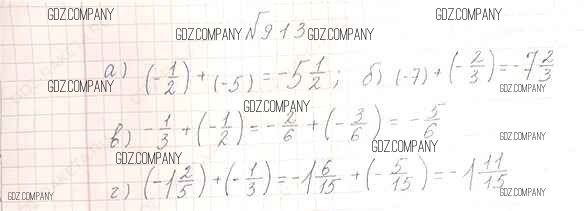 GDZ.COMPANY GDZ.COMPANY
GDZ.COMPANY №913 GDZ.COMPANY
а) (-1/2) + (-5) = -5 1/2; б) (-7) + (-2/3) = -7 2/3
GDZ.COMPANY GDZ.COMPANY
GDZ.COMPANY
в) -1/3 + (-1/2) = -2/6 + (-3/6) = -5/6
GDZ.COMPANY GDZ.COMPANY
г) (-1 2/5) + (-1/3) = -1 6/15 + (-5/15) = -1 11/15
GDZ.COMPANY GDZ.COMPANY GDZ.COMPANY